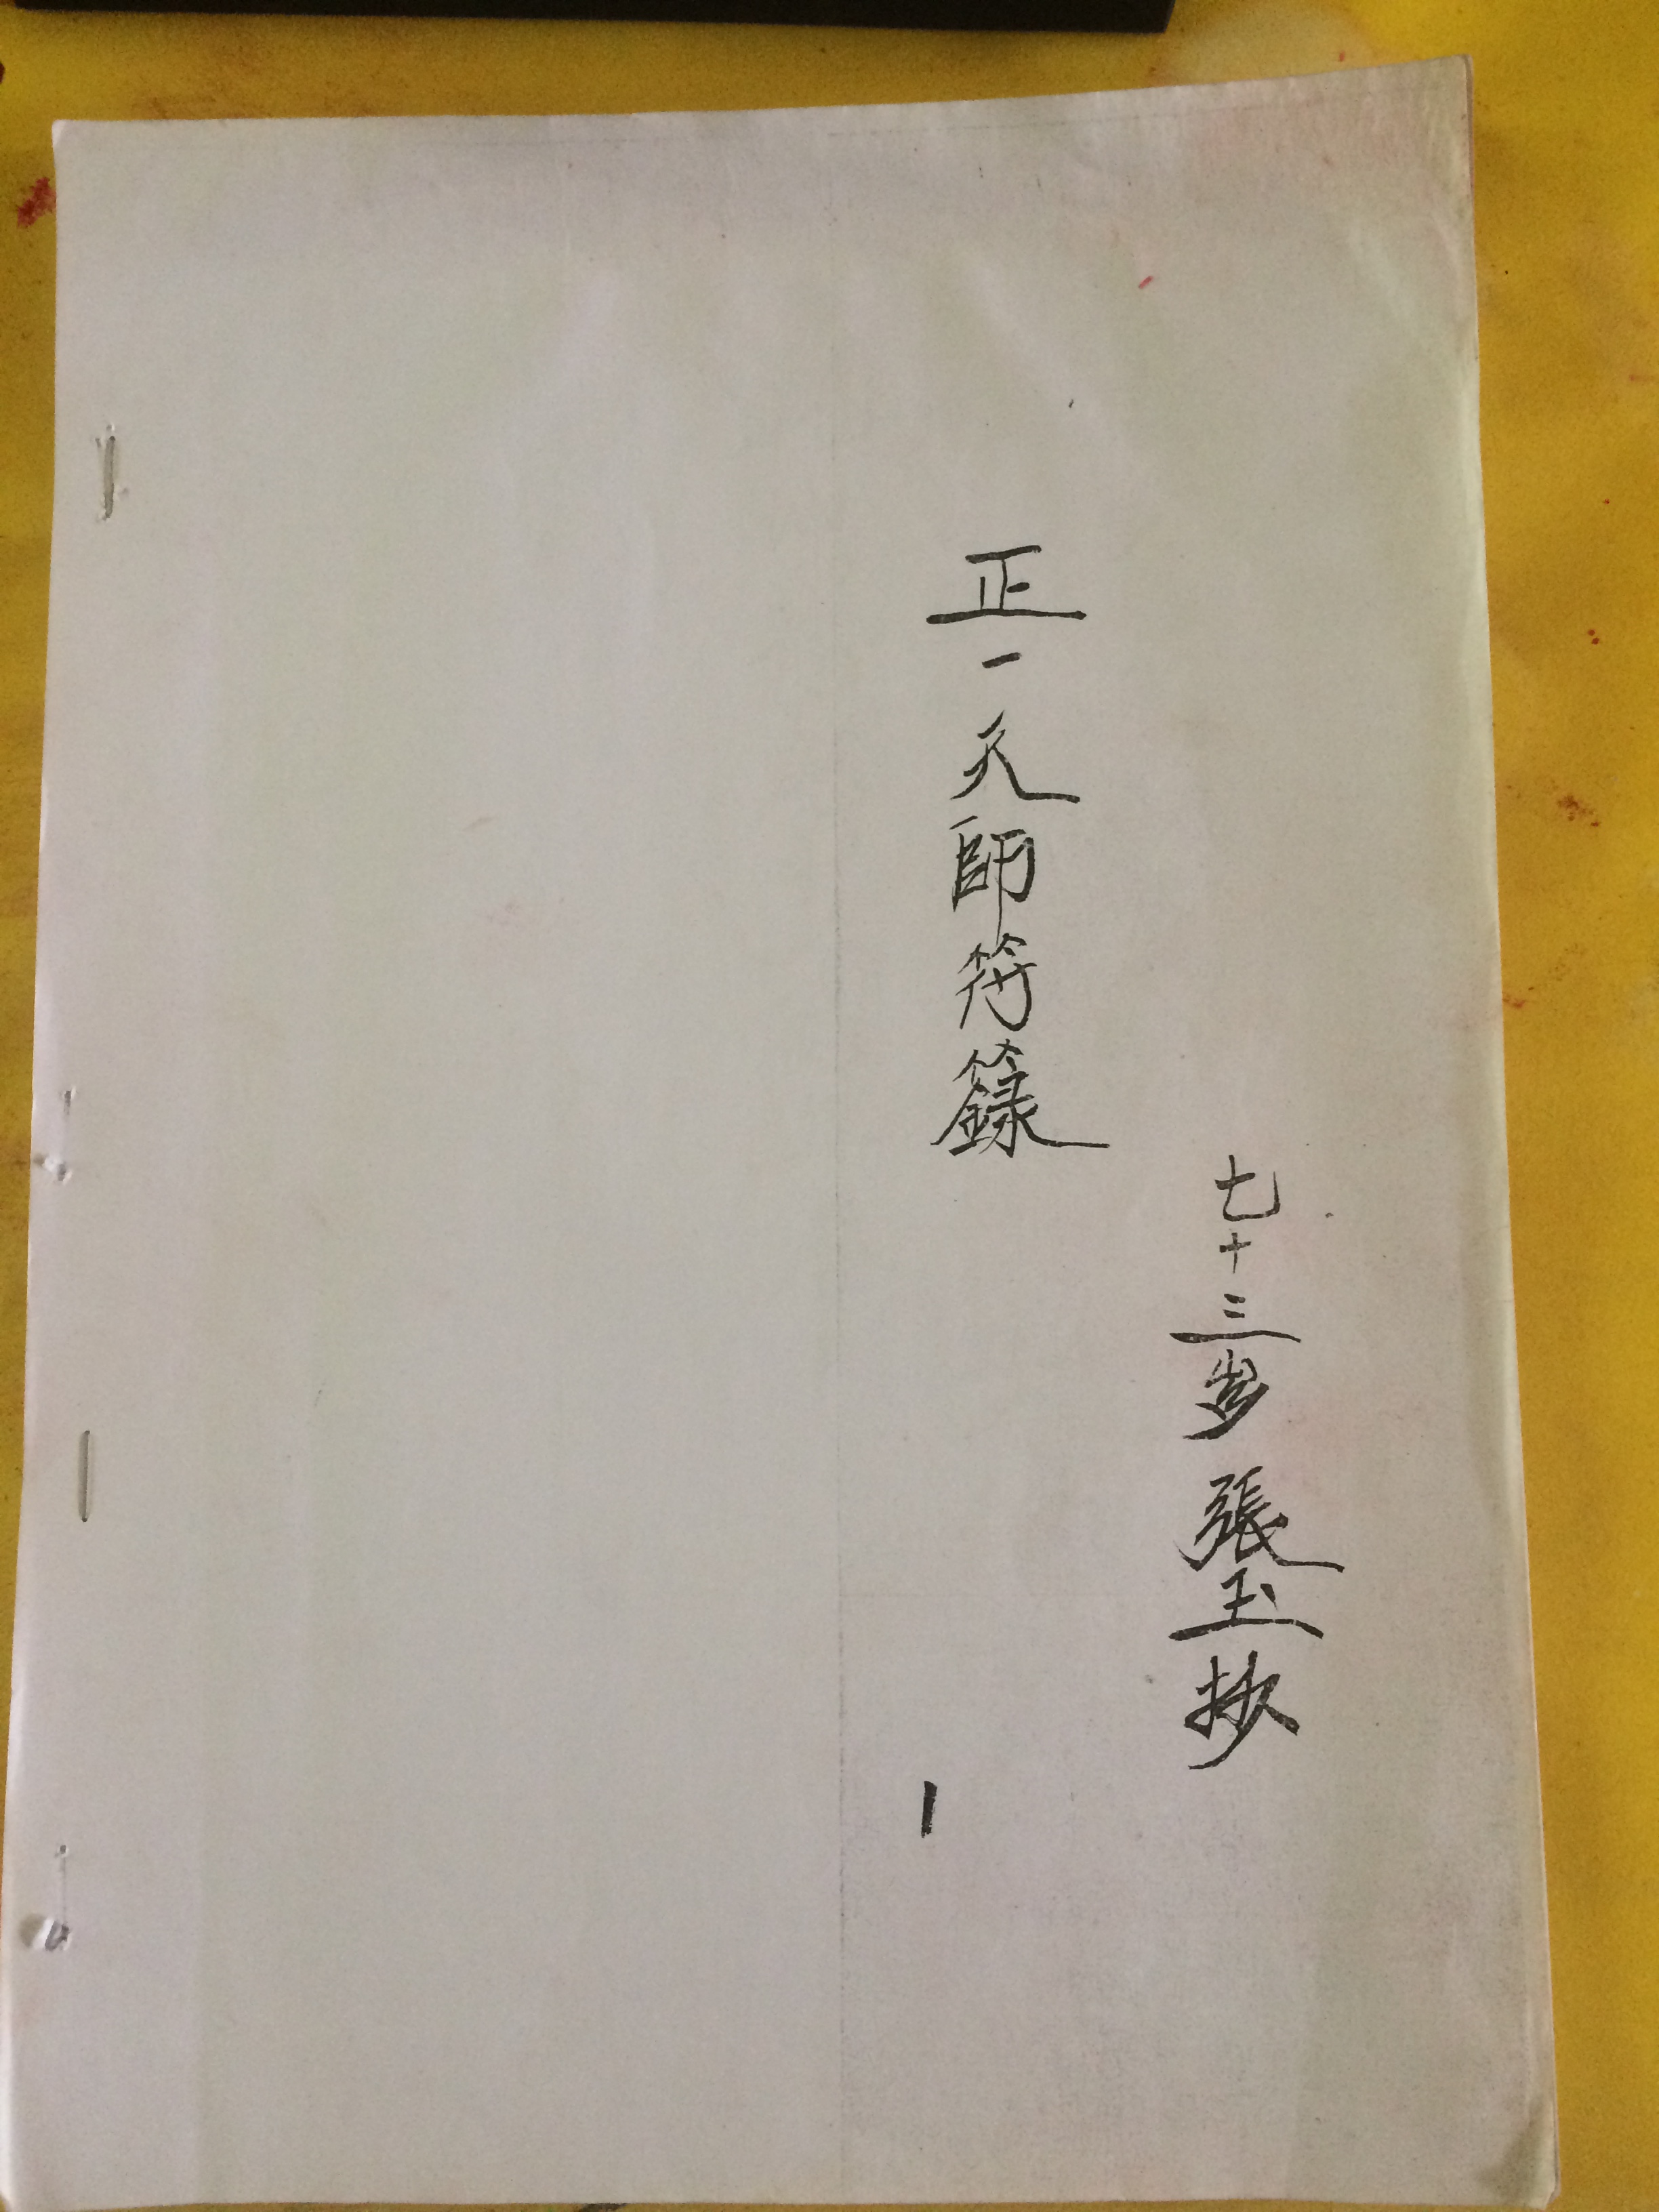 七十三岁張玉抄
正一天師符籙
1